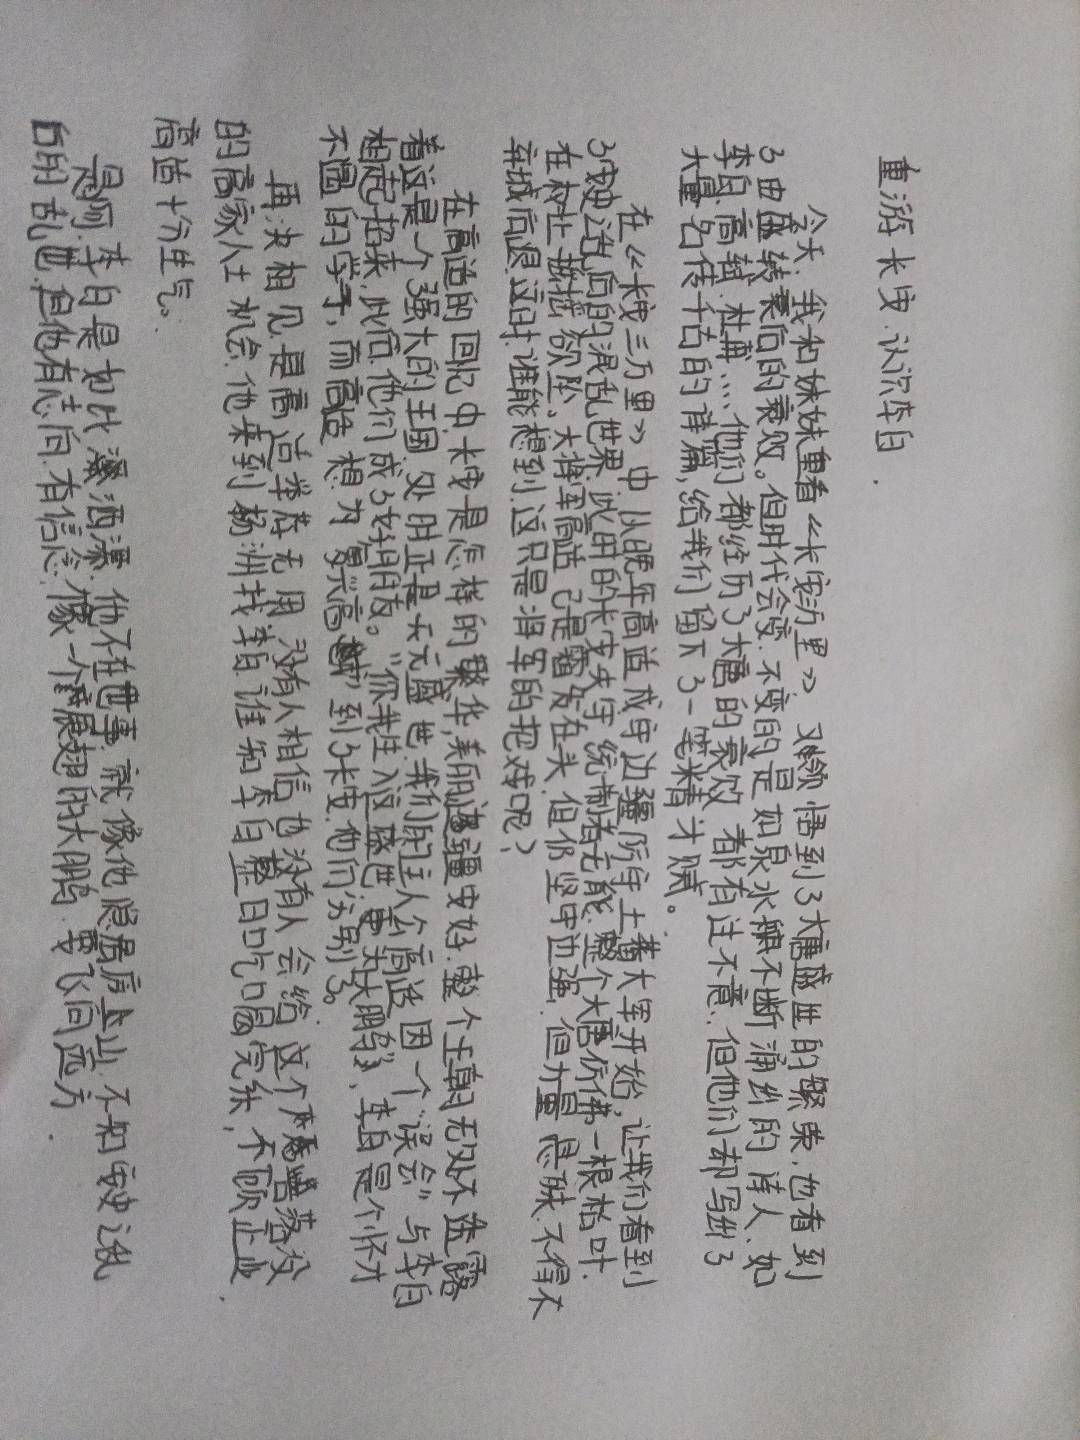 重游长安.认识李白.
今天,我和妹妹重看《长安三万里》又领悟到了大唐盛世的繁荣,也看到
了由盛转衰后的衰败。但时代会变.不变的是如泉水般不断涌出的诗人.如
李白.高适.杜甫....他们都经历了大唐的衰败.都有过不意.但他们却写出了
大量名传千古的诗篇,给我们留下了一笔精神财赋。
在《长安三万里》中.从晚年高适戍守边疆.防守土蕃大军开始,让我们看到
了安史之乱后的混乱世界.此时的长安失守.统制者无能.整个大唐仿佛一根枯叶.
在树上摇摇欲坠.大将军高适已是霜发在头.但仍坚守边强.但力量悬殊.不得不
弃城后退.这时.谁能想到.这只是将军的把戏呢?
在高适的回忆中.长安是怎样的繁华,美丽.边疆安好.整个王朝无处不透露
着这是一个强大的王国.处时正是天元盛世.我们的主人公高适.因一个"误会"与李白
相起招来.此后.他们成了好朋友。"你我生入这盛世.要为大鹏",李白是个怀才
不遇的学子,而高适想为"复兴高 "到了长安.他们分别了。
再次相见.是高适举荐无用.没有人相信.也没有人会给这个 落没
的高家人士机会.他来到扬洲找李白.谁知李白整日吃喝完乐,不顾正业.
高适十分生气。
是啊.李白是如此潇洒.他不在世事.就像他隐居庐山上.不知安史之乱
后的乱世.但他有志向.有信念.像一个展翅的大鹏.要飞向远方.